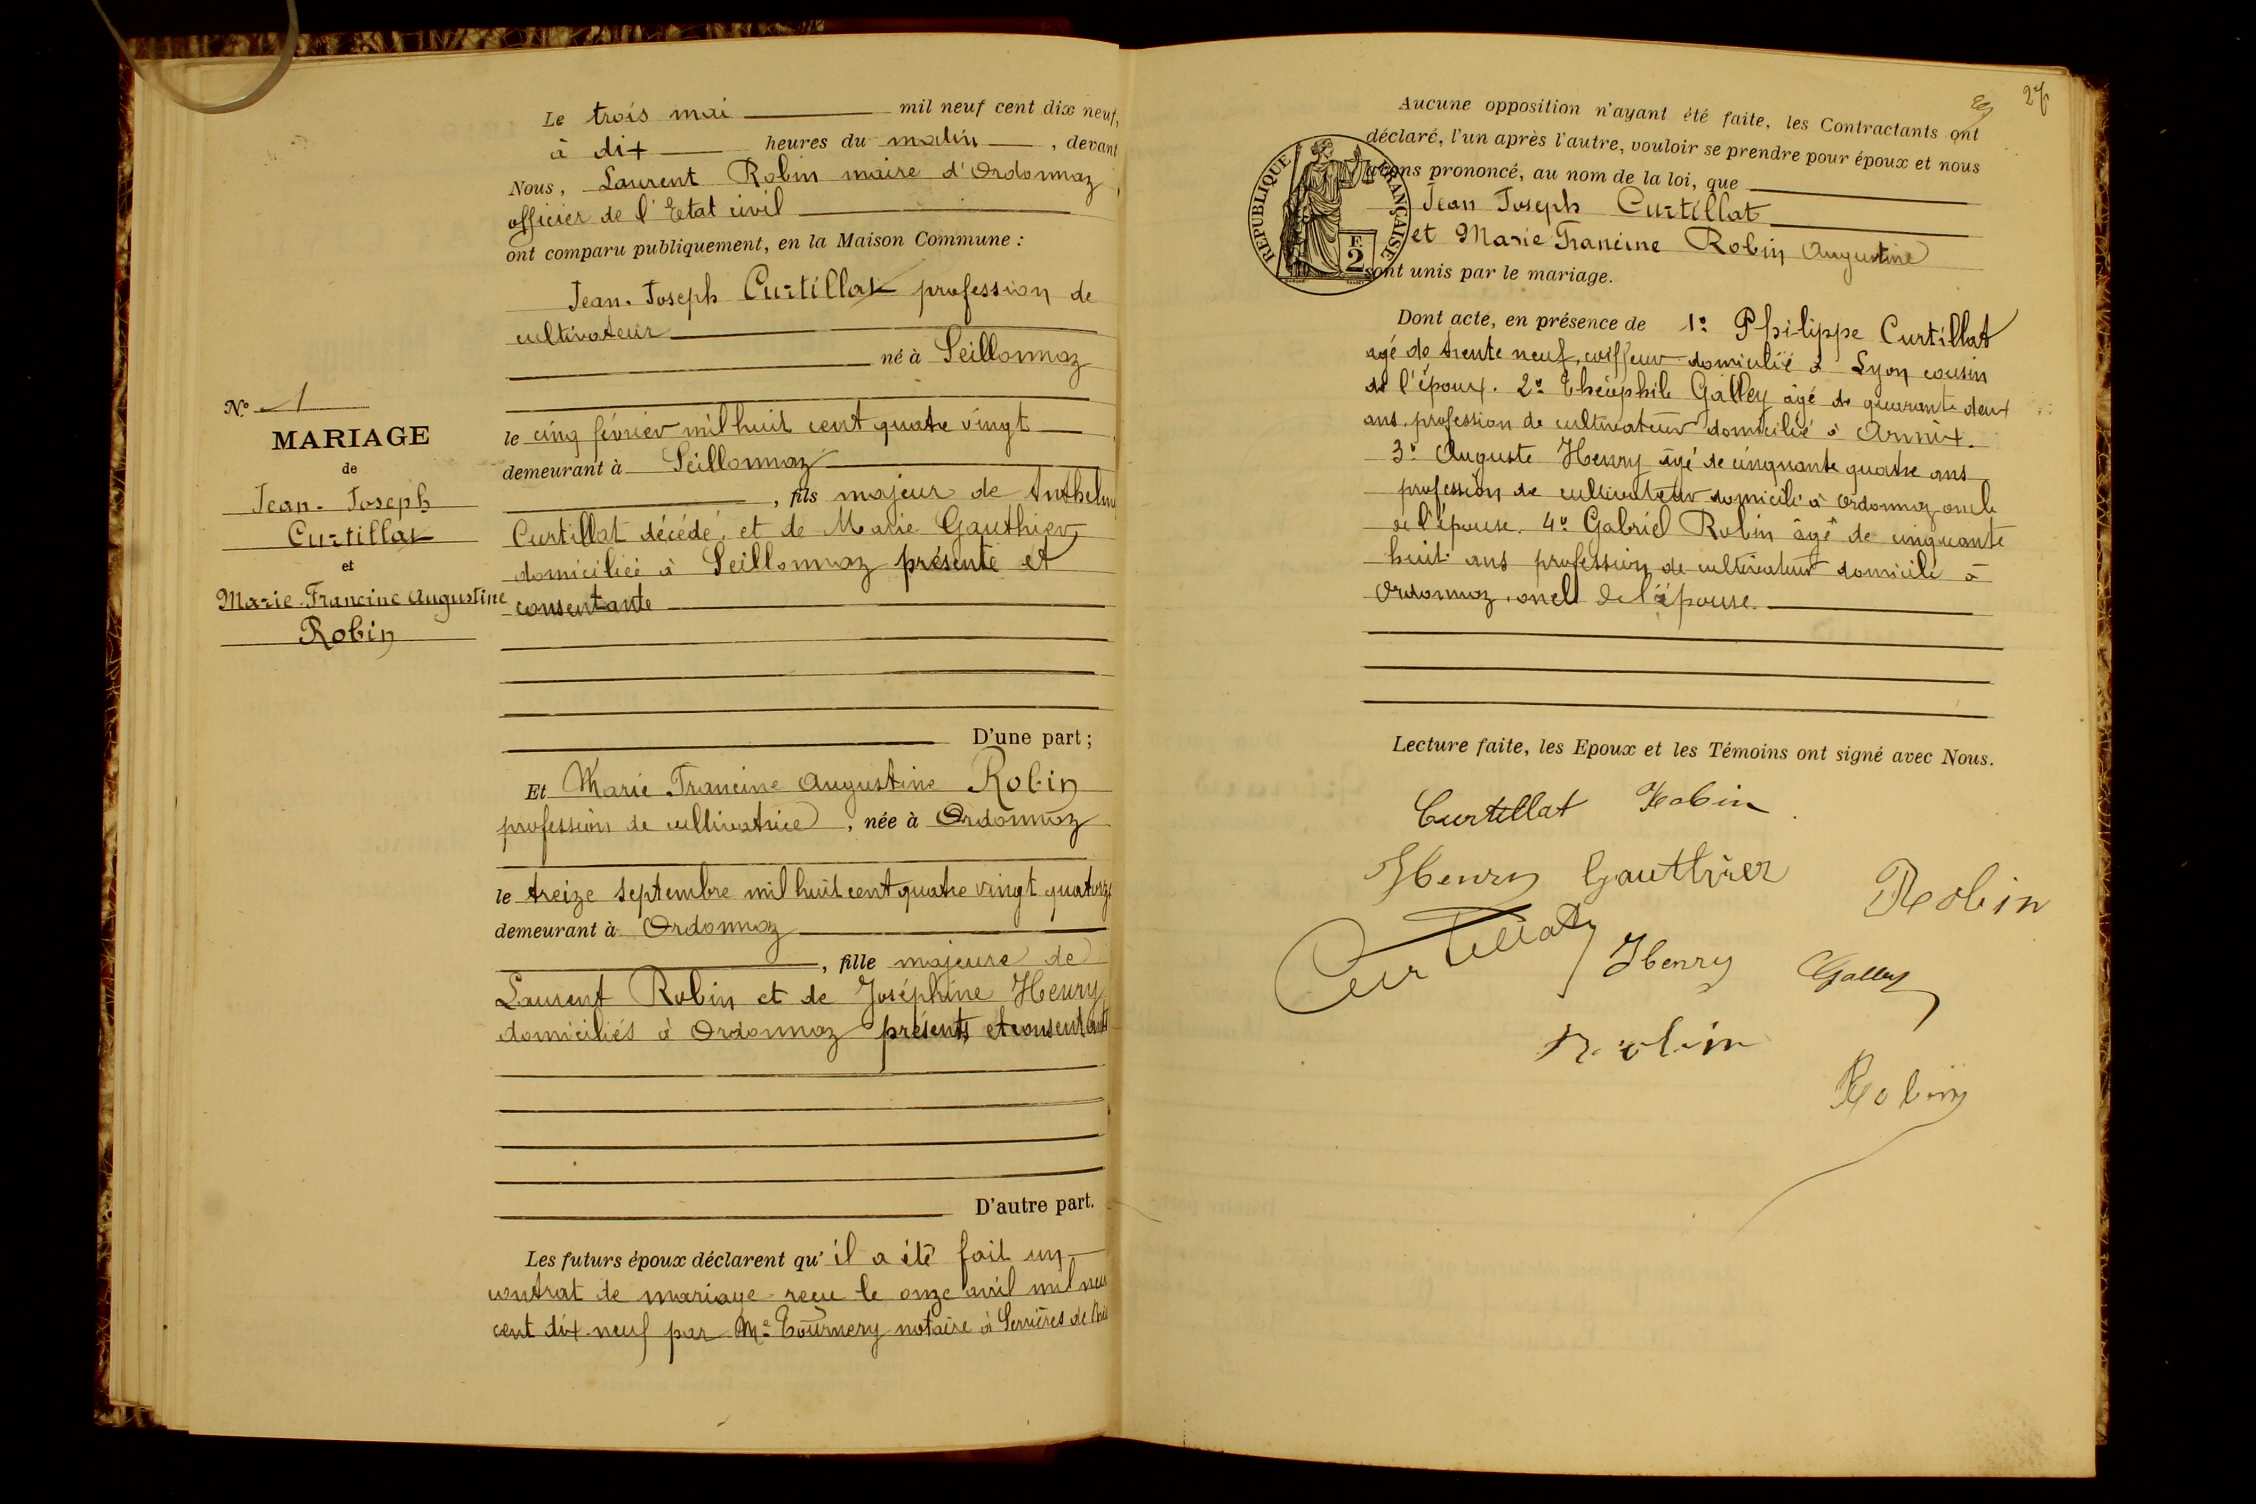 Le trois mai mil neuf cent dix neuf,
à dix heures du matin, devant
Nous, Laurent Robin maire d'Ordonnaz
officier de l'Etat civil
ont comparu publiquement, en la Maison Commune :
Jean-Joseph Curtillat profession de
cultivateur
né à Seillonnaz
le cinq février mil huit cent quatre vingt
demeurant à Seillonnaz
, fils majeur de Anthelm
Curtillat décédé, et de Marie Gauthier
domiciliée à Seillonnaz présente et
consentante
D'une part ;
Et Marie Francine Augustine Robin
profession de cultivatrice, née à Ordonnaz
le treize septembre mil huit cent quatre vingt quatorze
demeurant à Ordonnaz
, fille majeure de
Laurent Robin et de Joséphine Henry
domiciliés à Ordonnaz présents et consentants
D'autre part.
Les futurs époux déclarent qu'il a été fait un
contrat de mariage reçu le onze avril mil neuf
cent dix-neuf par Me Tournery notaire à Serrières de
N° 1
MARIAGE
de
Jean-Joseph
Curtillat
et
Marie Francine Augustine
Robin
27
Aucune opposition n'ayant été faite, les Contractants ont
déclaré, l'un après l'autre, vouloir se prendre pour époux et nous
avons prononcé, au nom de la loi, que
Jean Joseph Curtillat
et Marie Francine Robin Augustine
sont unis par le mariage.
RÉPUBLIQUE FRANÇAISE
F.
2
Dont acte, en présence de 1° Philippe Curtillat
agé de trente neuf, coiffeur domicilié à Lyon cousin
de l'époux. 2° Théophile Galley âgé de quarante deux
ans profession de cultivateur domicilié à Armix.
3° Auguste Henry âgé de cinquante quatre ans
profession de cultivateur domicilié à Ordonnaz oncle
de l'épouse. 4° Gabriel Robin âgé de cinquante
huit ans profession de cultivateur domicilié à
Ordonnaz, oncle de l'épouse.
Lecture faite, les Epoux et les Témoins ont signé avec Nous.
Curtillat Robin
Henry Gauthier Robin
Curtillat Henry Galley
Robin
Robin